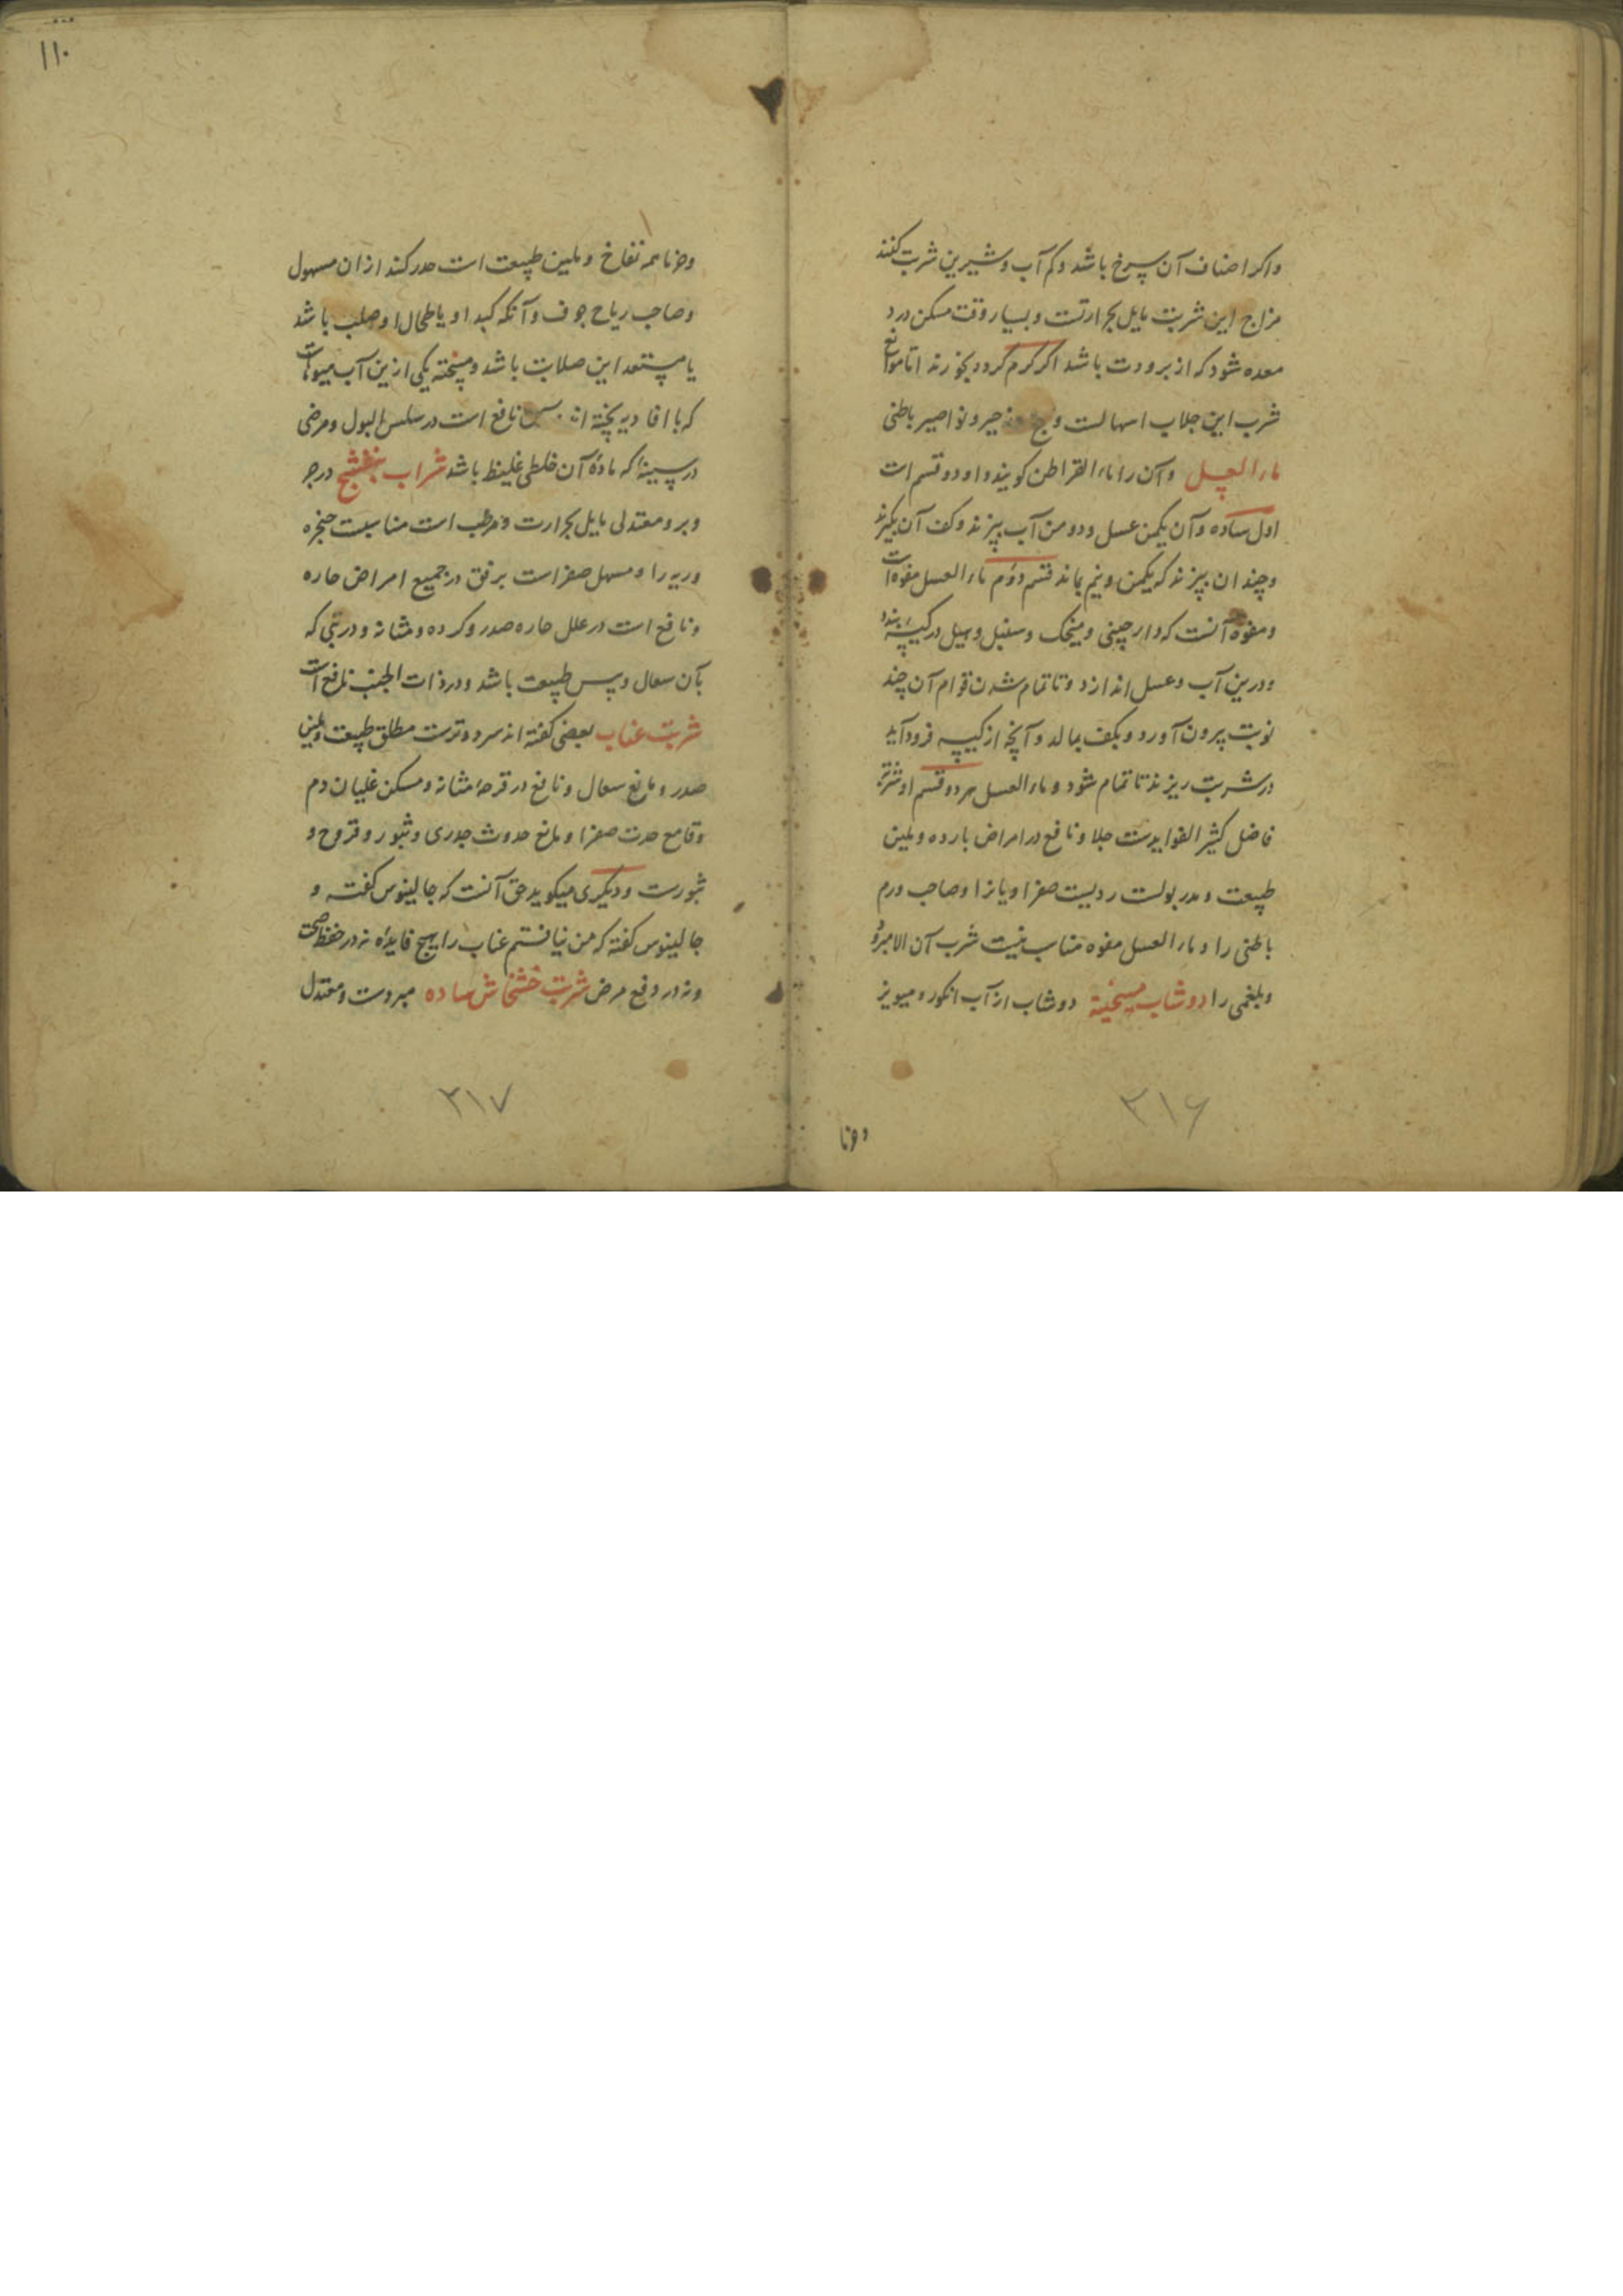 واکر اصناف آن سرخ باشد و کم آب و شیرین شربت کنند
مزاج این شربت مایل بحرارتست و بسیار وقت مسکن درد
معده شود که از برودت باشد اکر کرم کرده بخورند اما موانع
شرب این جلاب اسهالست و زحیر و نواصیر باطنی
ماء العسل وآن را ماء القراطن کویند و او دو قسم است
اول ساده وآن یکمن عسل و دو من آب بپزند وکف آن بکیرند
وچندان بپزند که یکمن ونیم بماند قسم دوم ماء العسل مفوه است
ومفوه آنست که دارچینی ومیخک وسنبل وهیل در کیسه بندد
ودرین آب وعسل اندازد وتا تمام شدن قوام آن چند
نوبت بیرون آورد وبکف بمالد وآنچه از کیسه فرود آید
در شربت ریزند تا تمام شود وماء العسل هر دو قسم او شربتی
فاضل کثیر الفوایدست جلا ونافع در امراض بارده وملین
طبیعت ومدر بولست ردیست صفراویانرا وصاحب ورم
باطنی را وماء العسل مفوه مناسب نیست شرب آن الا مبرود
وبلغمی را دوشاب میپخته دوشاب از آب انکور ومیویز
وخرما
۳۱۶
۱۱۰
وخرما همه نفاخ وملین طبیعت است حذر کند ازان مسهول
وصاحب ریاح جوف وآنکه کبد او یا طحال او صلب باشد
یا مستعد این صلابت باشد ومیپخته یکی ازین آب میوهاست
که با افادیه پخته اند بس نافع است در سلس البول ومرضی
در سینه که مادۀ آن خلطی غلیظ باشد شراب بنفشج در حر
وبرد معتدلی مایل بحرارت ومرطب است مناسبست حنجره
وریه را ومسهل صفراست برفق در جمیع امراض حاره
ونافع است در علل حاره صدر وکرده ومثانه ودر تبی که
بآن سعال ویبس طبیعت باشد ودر ذات الجنب نافع است
شربت عناب بعضی کفته اند سرد وترست مطلق طبیعت وملین
صدر ومانع سعال ونافع در قرحۀ مثانه ومسکن غلیان دم
وقامع حدت صفرا ومانع حدوث جدری وبثور وقروح و
بثورست ودیکری میکوید حق آنست که جالینوس کفته و
جالینوس کفته که من نیافتم عناب را هیچ فایده نه در حفظ صحت
ونه در دفع مرض شربت خشخاش ساده مبردست ومعتدل
۳۱۷